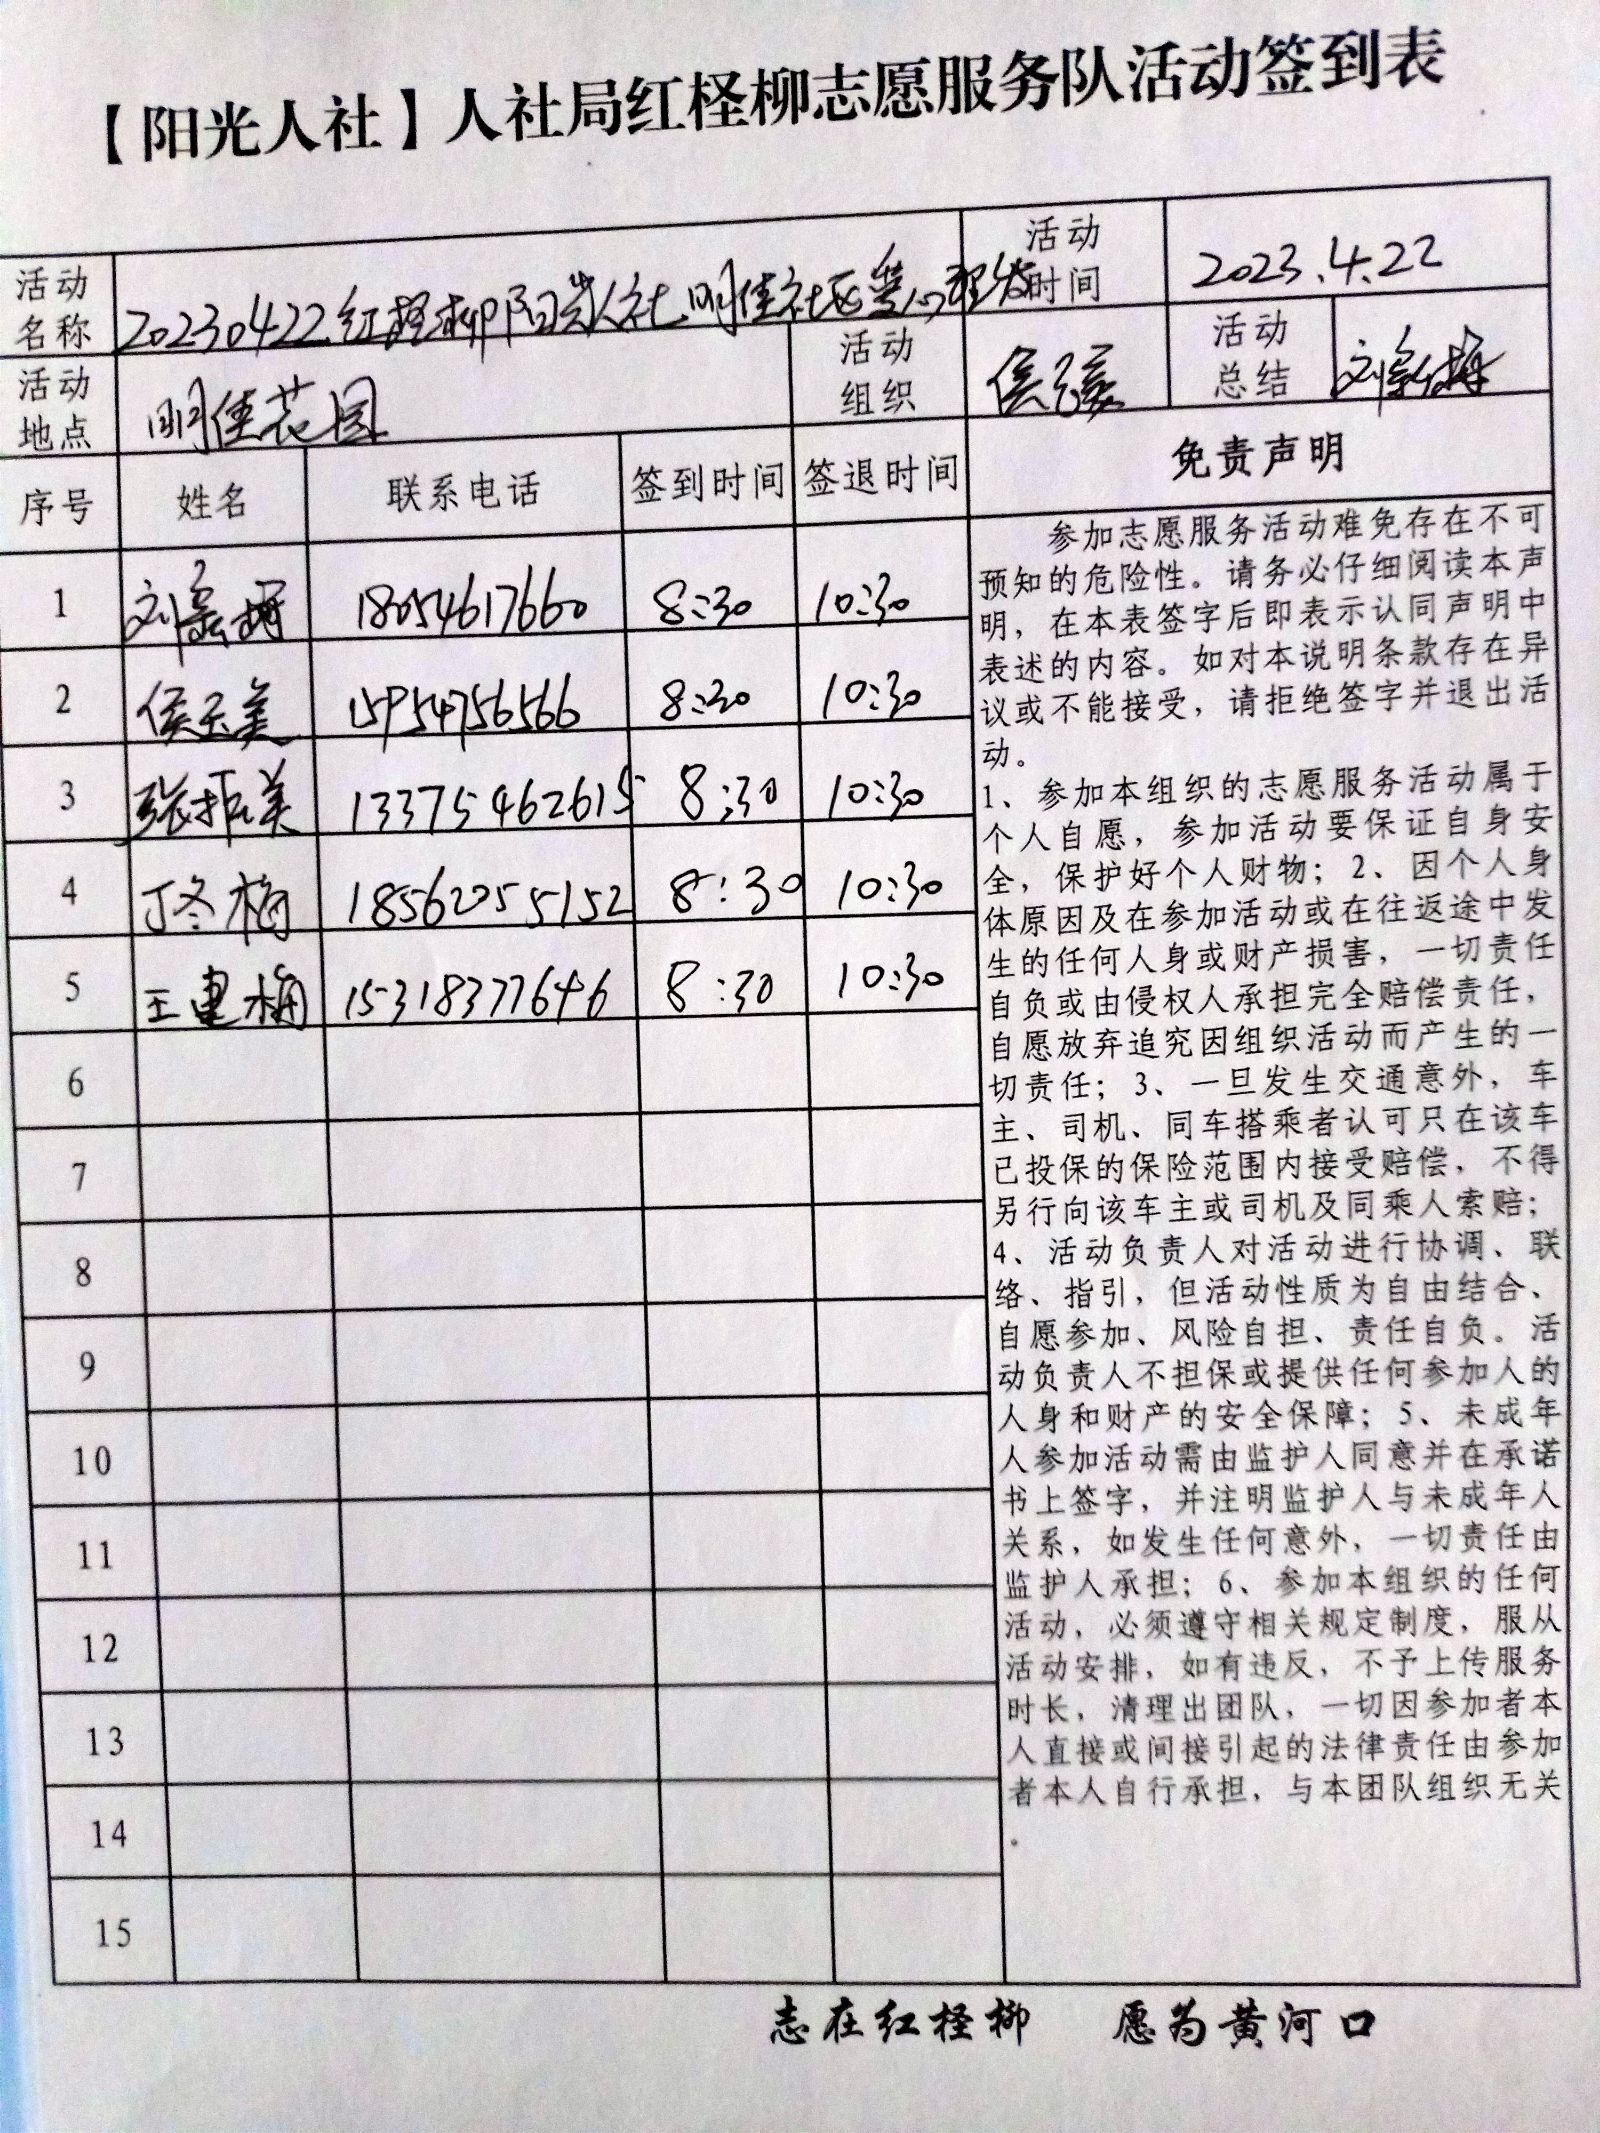 【阳光人社】人社局红柽柳志愿服务队活动签到表
活动名称 20230422红柽柳阳光人社明佳社区爱心理发 活动时间 2023.4.22
活动地点 明佳花园 活动组织 侯 活动总结 刘
序号 姓名 联系电话 签到时间 签退时间 免责声明
1 刘 18054617660 8:30 10:30
2 侯玉美 15954756566 8:30 10:30
3 张振美 13375462615 8:30 10:30
4 丁冬梅 18562055152 8:30 10:30
5 王建梅 15318377646 8:30 10:30
6
7
8
9
10
11
12
13
14
15
参加志愿服务活动难免存在不可
预知的危险性。请务必仔细阅读本声
明，在本表签字后即表示认同声明中
表述的内容。如对本说明条款存在异
议或不能接受，请拒绝签字并退出活
动。
1、参加本组织的志愿服务活动属于
个人自愿，参加活动要保证自身安
全，保护好个人财物；2、因个人身
体原因及在参加活动或在往返途中发
生的任何人身或财产损害，一切责任
自负或由侵权人承担完全赔偿责任，
自愿放弃追究因组织活动而产生的一
切责任；3、一旦发生交通意外，车
主、司机、同车搭乘者认可只在该车
已投保的保险范围内接受赔偿，不得
另行向该车主或司机及同乘人索赔；
4、活动负责人对活动进行协调、联
络、指引，但活动性质为自由结合、
自愿参加、风险自担、责任自负。活
动负责人不担保或提供任何参加人的
人身和财产的安全保障；5、未成年
人参加活动需由监护人同意并在承诺
书上签字，并注明监护人与未成年人
关系，如发生任何意外，一切责任由
监护人承担；6、参加本组织的任何
活动，必须遵守相关规定制度，服从
活动安排，如有违反，不予上传服务
时长，清理出团队，一切因参加者本
人直接或间接引起的法律责任由参加
者本人自行承担，与本团队组织无关
。
志在红柽柳 愿为黄河口